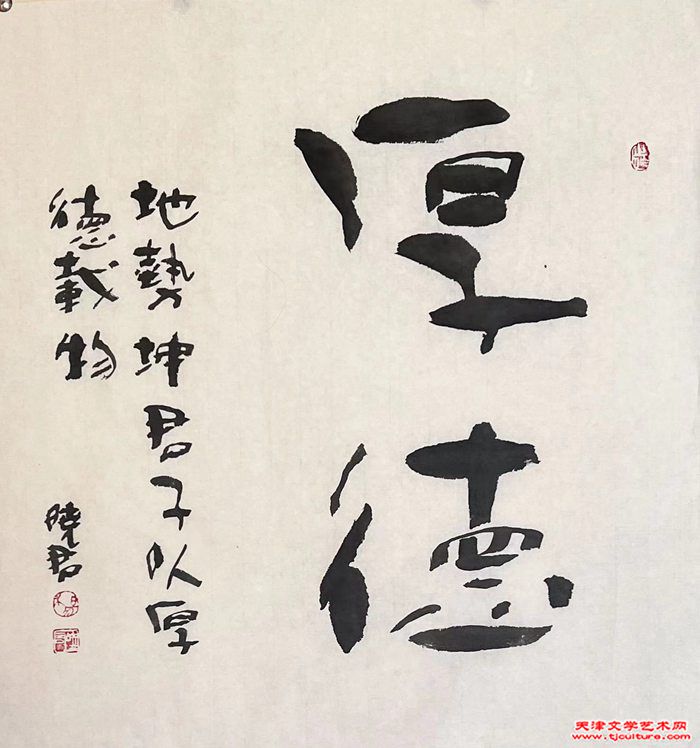 厚德
地勢坤君子以厚
德載物
曉君
天津文学艺术网
www.tjculture.com